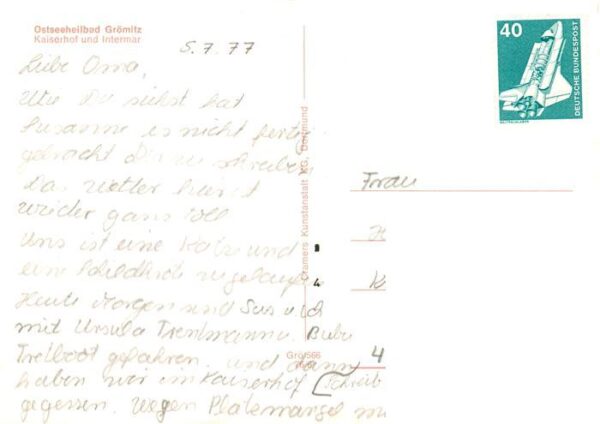 Ostseeheilbad Grömitz
Kaiserhof und Intermar
5.7.77
40
DEUTSCHE BUNDESPOST
WELTRAUMLABOR
Liebe Oma,
Wie Du siehst hat
Susanne es nicht fertig
gebracht Dir zu schreiben
Das Wetter heute ist
wieder ganz toll
Uns ist eine Katze und
eine Schildkröte zugelaufen
Heute Morgen sind Sus und
mit Ursula Trentmann u. Bube
Tretboot gefahren. und dann
haben wir im Kaiserhof
gegessen. Wegen Platzmangel
Cramers Kunstanstalt KG, Dortmund
Frau
H
K
4
Grö 566